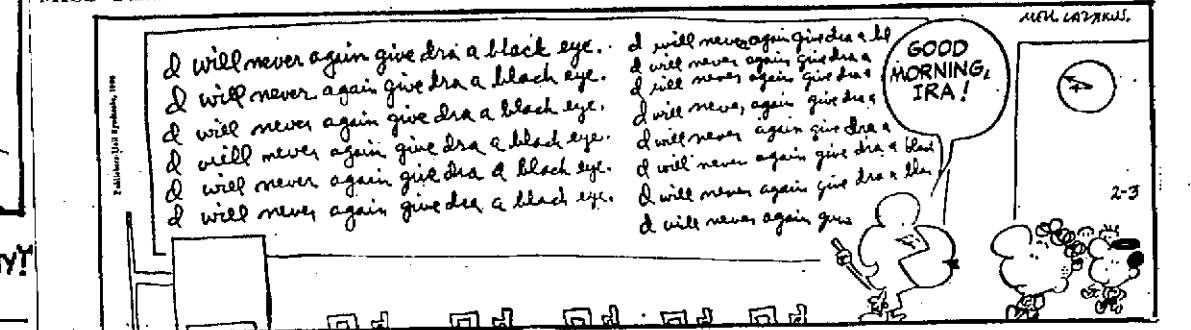 Publishers-Hall Syndicate, 1970
I will never again give Ira a black eye.
I will never again give Ira a black eye.
I will never again give Ira a black eye.
I will never again give Ira a black eye.
I will never again give Ira a black eye.
I will never again give Ira a black eye.
I will never again give Ira a bl
I will never again give Ira
I will never again give Ira
I will never again give Ira a
I will never again give Ira a
I will never again give Ira a blac
I will never again give Ira a blac
I will never again give
GOOD
MORNING,
IRA!
MELL LAZARUS.
2-3